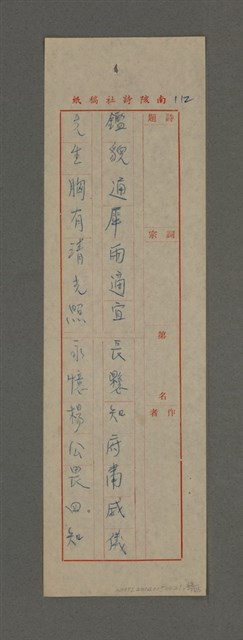 南陔詩社稿紙
112
詩題
詞宗
壇名
作者
鑑貌通犀雨適宜 長懸知府肅威儀
先生胸有清光照 永憶楊公畏四知